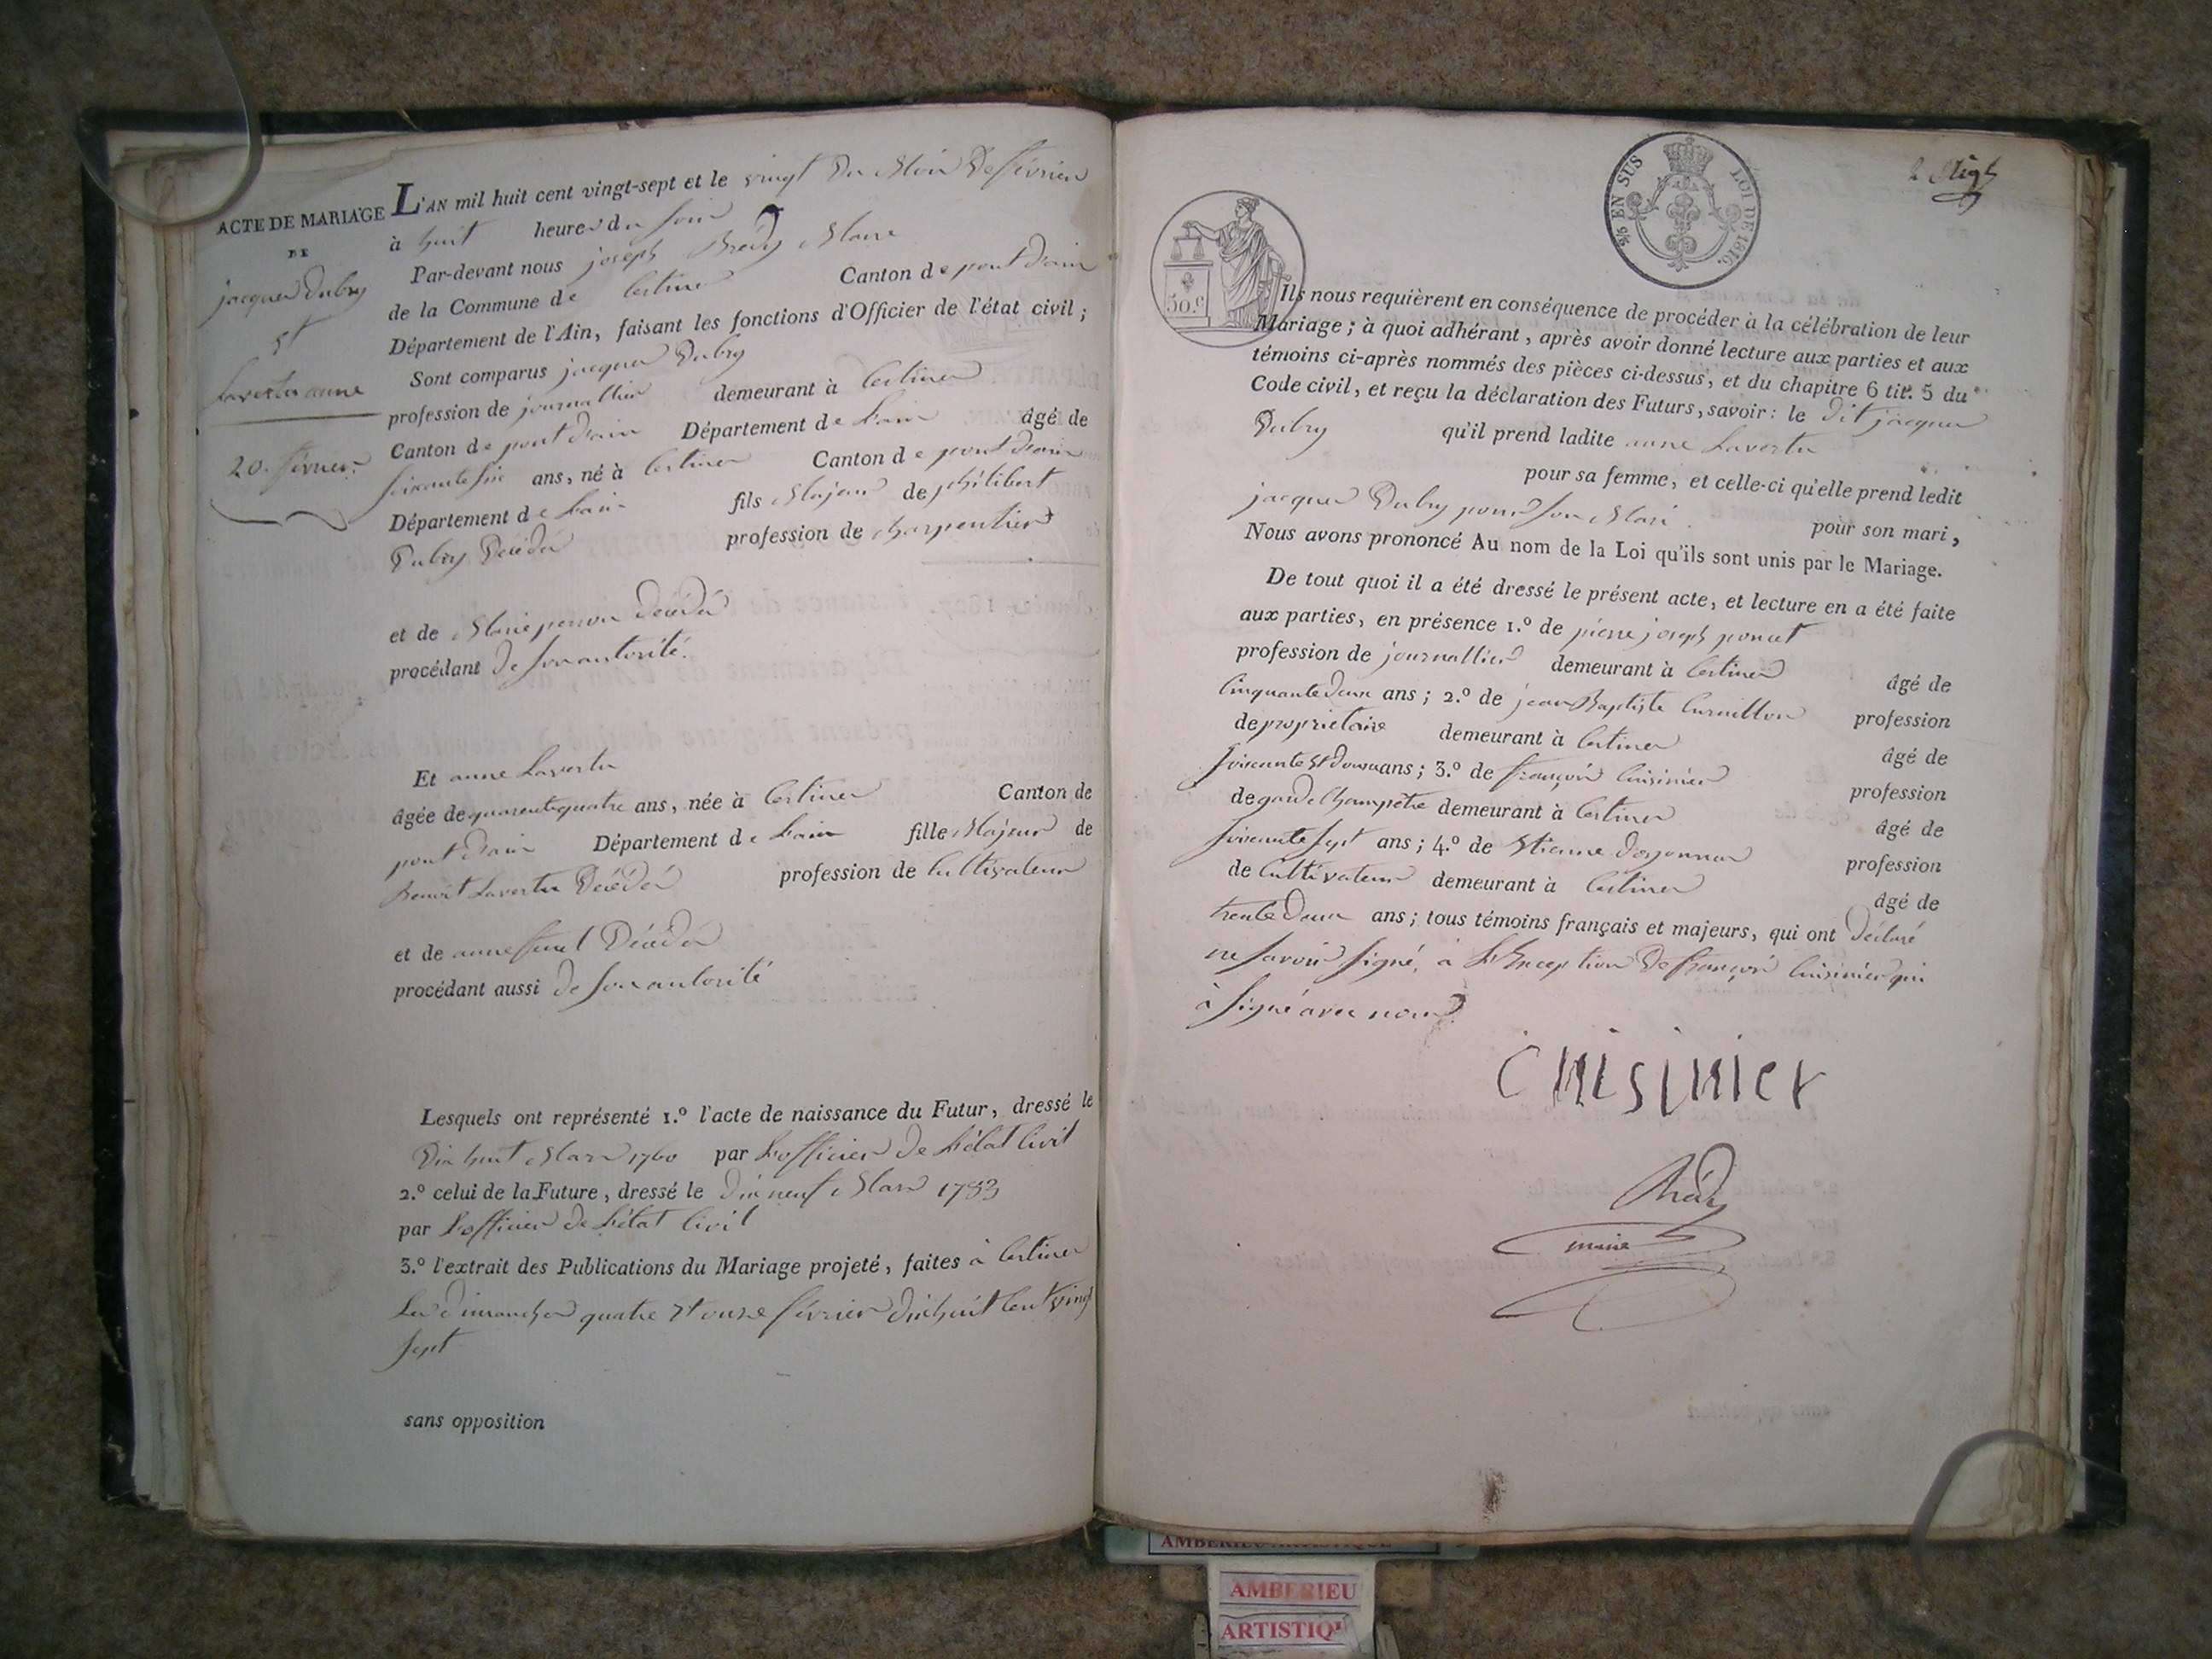 ACTE DE MARIAGE
DE
jacques Dubry
et
Lavertu anne
20. février.
L'AN mil huit cent vingt-sept et le vingt Du Mois De février
à huit heures du soir
Par-devant nous joseph Brédy Maire
de la Commune de Certines Canton de pont D'ain
Département de l'Ain, faisant les fonctions d'Officier de l'état civil ;
Sont comparus jacques Dubry
profession de journallier demeurant à Certines
Canton de pont D'ain Département de L'ain âgé de
soixante six ans, né à Certines Canton de pont D'ain
Département de L'ain fils Majeur de philibert
Dubry Décédé profession de charpentier
et de Marie perron Décédé
procédant De son autorité.
Et anne Lavertu
âgée de quarente quatre ans, née à Certines Canton de
pont D'ain Département de L'ain fille Majeur de
Benoit Lavertu Décédé profession de Cultivateur
et de anne Décédé
procédant aussi De son autorité
Lesquels ont représenté 1.º l'acte de naissance du Futur, dressé le
Dix huit Mars 1760 par L'officier De L'état Civil
2.º celui de la Future, dressé le Dix neuf Mars 1783
par L'officier De L'état Civil
3.º l'extrait des Publications du Mariage projeté, faites à Certines
Les Dimanches quatre et onze février Dixhuit Cent vingt
sept
sans opposition
5/6 EN SUS LOI DE 1816.
50.c
Ils nous requièrent en conséquence de procéder à la célébration de leur
Mariage ; à quoi adhérant, après avoir donné lecture aux parties et aux
témoins ci-après nommés des pièces ci-dessus, et du chapitre 6 tit. 5 du
Code civil, et reçu la déclaration des Futurs, savoir : le Dit jacques
Dubry qu'il prend ladite anne Lavertu
pour sa femme, et celle-ci qu'elle prend ledit
jacques Dubry pour son Mari. pour son mari,
Nous avons prononcé Au nom de la Loi qu'ils sont unis par le Mariage.
De tout quoi il a été dressé le présent acte, et lecture en a été faite
aux parties, en présence 1.º de pierre joseph poncet
profession de journallier demeurant à Certines âgé de
Cinquante Deux ans ; 2.º de jean Baptiste Curnillon profession
de proprietaire demeurant à Certines âgé de
soixante et Douze ans ; 3.º de françois Cuisinier profession
de garde Champêtre demeurant à Certines âgé de
soixante sept ans ; 4.º de Etienne profession
de Cultivateur demeurant à Certines âgé de
trente Deux ans ; tous témoins français et majeurs, qui ont Déclaré
ne savoir signé, à L'Exception De françois Cuisinier qui
à signé avec nous
Cuisinier
Brédy
maire
AMBERIEU ARTISTIQUE
AMBERIEU
ARTISTIQU